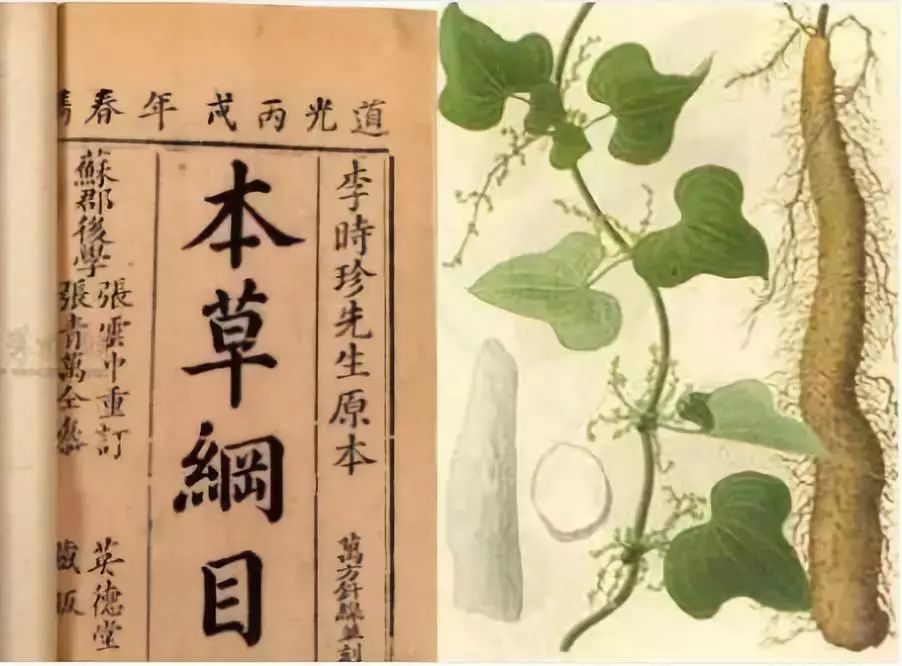 道光丙戌年春
李時珍先生原本
萬方針線並刻
本草綱目
蘇郡後學
張雲中重訂
張青萬仝叅
英德堂
藏版